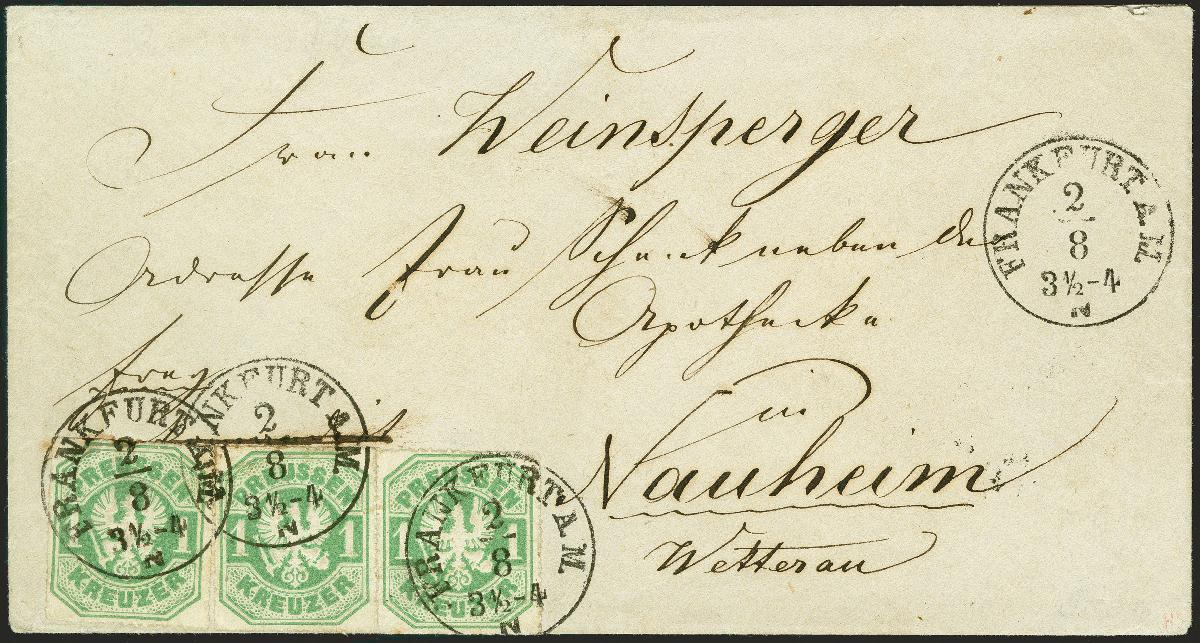 Frau Weinsperger
Adresse Frau Schenk neben der
Apothecke
in
Nauheim
Wetterau
FRANKFURT A.M.
2
8
3½-4
N
FRANKFURT A.M.
2
8
3½-4
N
FRANKFURT A.M.
2
8
3½-4
N
FRANKFURT A.M.
2
8
3½-4
N
PREUSSEN
1 1
KREUZER
PREUSSEN
1 1
KREUZER
PREUSSEN
1
KREUZER